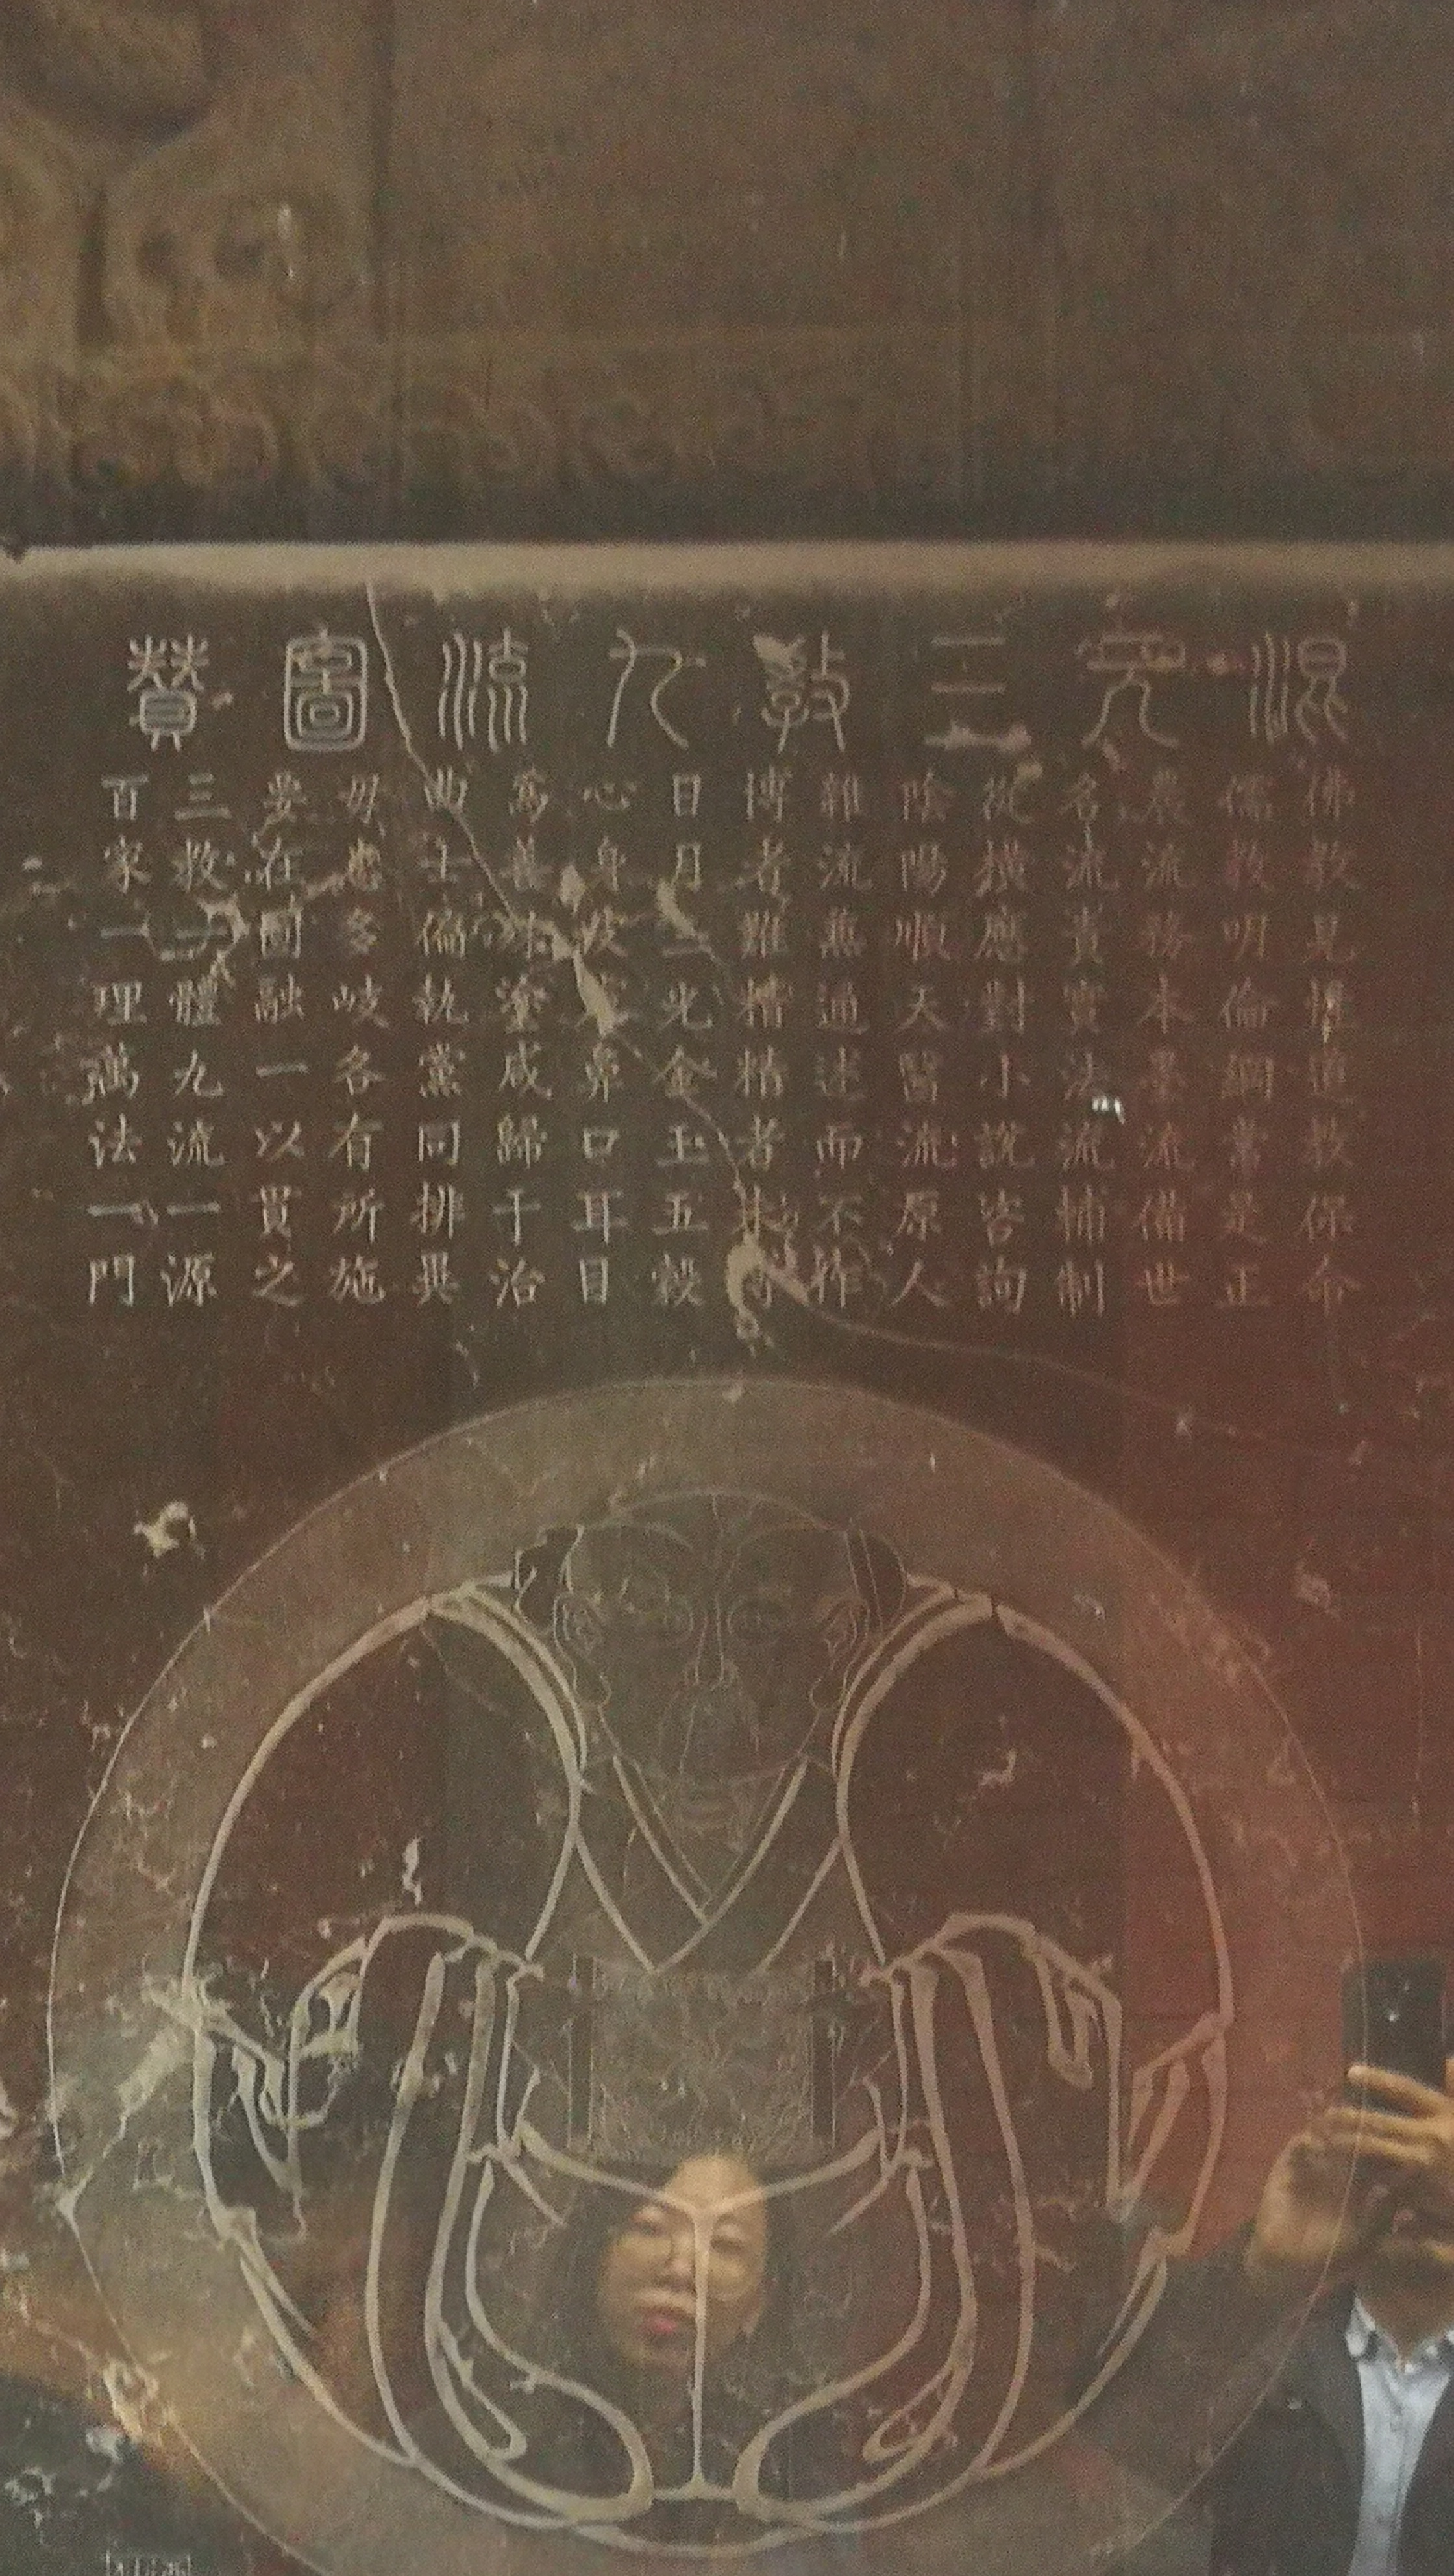 混元三教九流圖贊
佛教見性道教保命
儒教明倫綱常是正
農流務本墨流備世
名流責實法流輔制
縱橫應對小說咨詢
陰陽順天醫流原人
雜流兼通述而不作
博者難精精者未博
日月三光金玉五穀
心身皮膚鼻口耳目
為善殊塗咸歸于治
曲士偏執黨同排異
毋患多岐各有所施
要在圓融一以貫之
三教一體九流一源
百家一理萬法一門